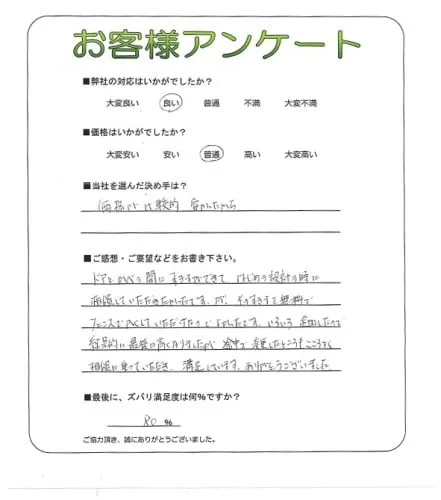 お客様アンケート
■弊社の対応はいかがでしたか?
大変良い 良い 普通 不満 大変不満
■価格はいかがでしたか?
大変安い 安い 普通 高い 大変高い
■当社を選んだ決め手は?
価格が比較的安かったから
■ご感想・ご要望などをお書き下さい。
ドアと の間にすきまができて はじめの設計の時に
相談していただきたかったです。が、そのすきまも無料で
フェンスで していただけたのでよかったです。いろいろ追加したので
結果的に最後に高くなりましたが 途中で変更したところも こころよく
相談に乗っていただき、満足しています。ありがとうございました
■最後に、ズバリ満足度は何%ですか?
80 %
ご協力頂き、誠にありがとうございました。